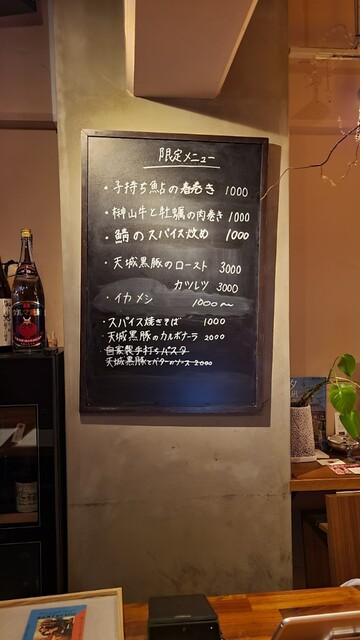 限定メニュー
・子持ち鮎の春巻き 1000
・榊山牛と牡蠣の肉巻き 1000
・鯖のスパイス炒め 1000
・天城黒豚のロースト 3000
カツレツ 3000
・イカメシ 1000〜
・スパイス焼きそば 1000
・天城黒豚のカルボナーラ 2000
・自家製手打ちパスタ
天城黒豚とバターのソース 2000